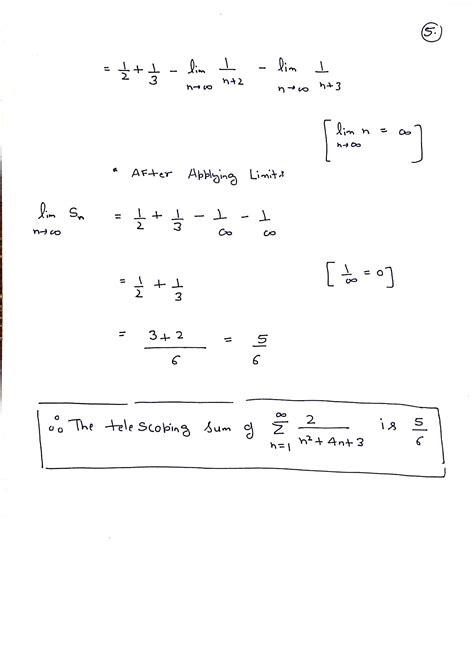 5.
= 1/2 + 1/3 - lim n→∞ 1/n+2 - lim n→∞ 1/n+3
[lim n→∞ n = ∞]
* After Applying Limits
lim n→∞ Sn = 1/2 + 1/3 - 1/∞ - 1/∞
= 1/2 + 1/3 [1/∞ = 0]
= 3+2/6 = 5/6
∴ The telescoping sum of ∞ Σ n=1 2/n²+4n+3 is 5/6